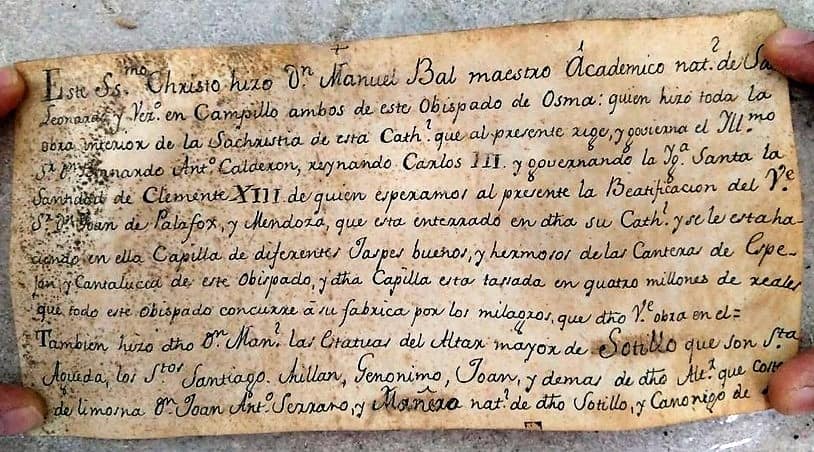 ✝
Este Ss.mo Christo hizo Dn. Manuel Bal maestro Academico nat.l de Sn
Leonardo, y Vez.o en Campillo ambos de este Obispado de Osma: quien hizo toda la
obra interior de la Sachristia de esta Cath.l que al presente rige, y govierna el Ill.mo
Sr. Dn. Bernardo Ant.o Calderon, reynando Carlos III. y governando la Ig.a Santa la
Santidad de Clemente XIII. de quien esperamos al presente la Beatificacion del Ve.
Sr. Dn. Joan de Palafox, y Mendoza, que esta enterrado en dha su Cath.l y se le esta ha-
ciendo en ella Capilla de diferentes Jaspes buenos, y hermosos de las Canteras de Espe-
jon, y Cantalucia de este Obispado, y dha Capilla esta tassada en quatro millones de reales
que todo este Obispado concurre à su fabrica por los milagros, que dho Ve. obra en el=
Tambien hizo dho Dn. Man.l las Estatuas del Altar mayor de Sotillo que son Sta.
Agueda, los Stos. Santiago. Millan, Geronimo, Joan, y demas de dho Alt.r que costeo
de limosna Dn. Joan Ant.o Serrano, y Mañero nat.l de dho Sotillo, y Canonigo de